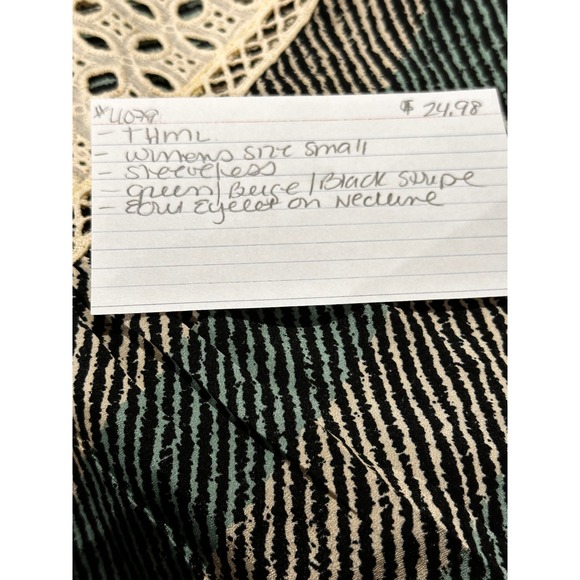 #4079 $ 24.98
- THML
- Womens size small
- Sleeveless
- green/Beige/Black Stripe
- Ecru Eyelet on Neckline